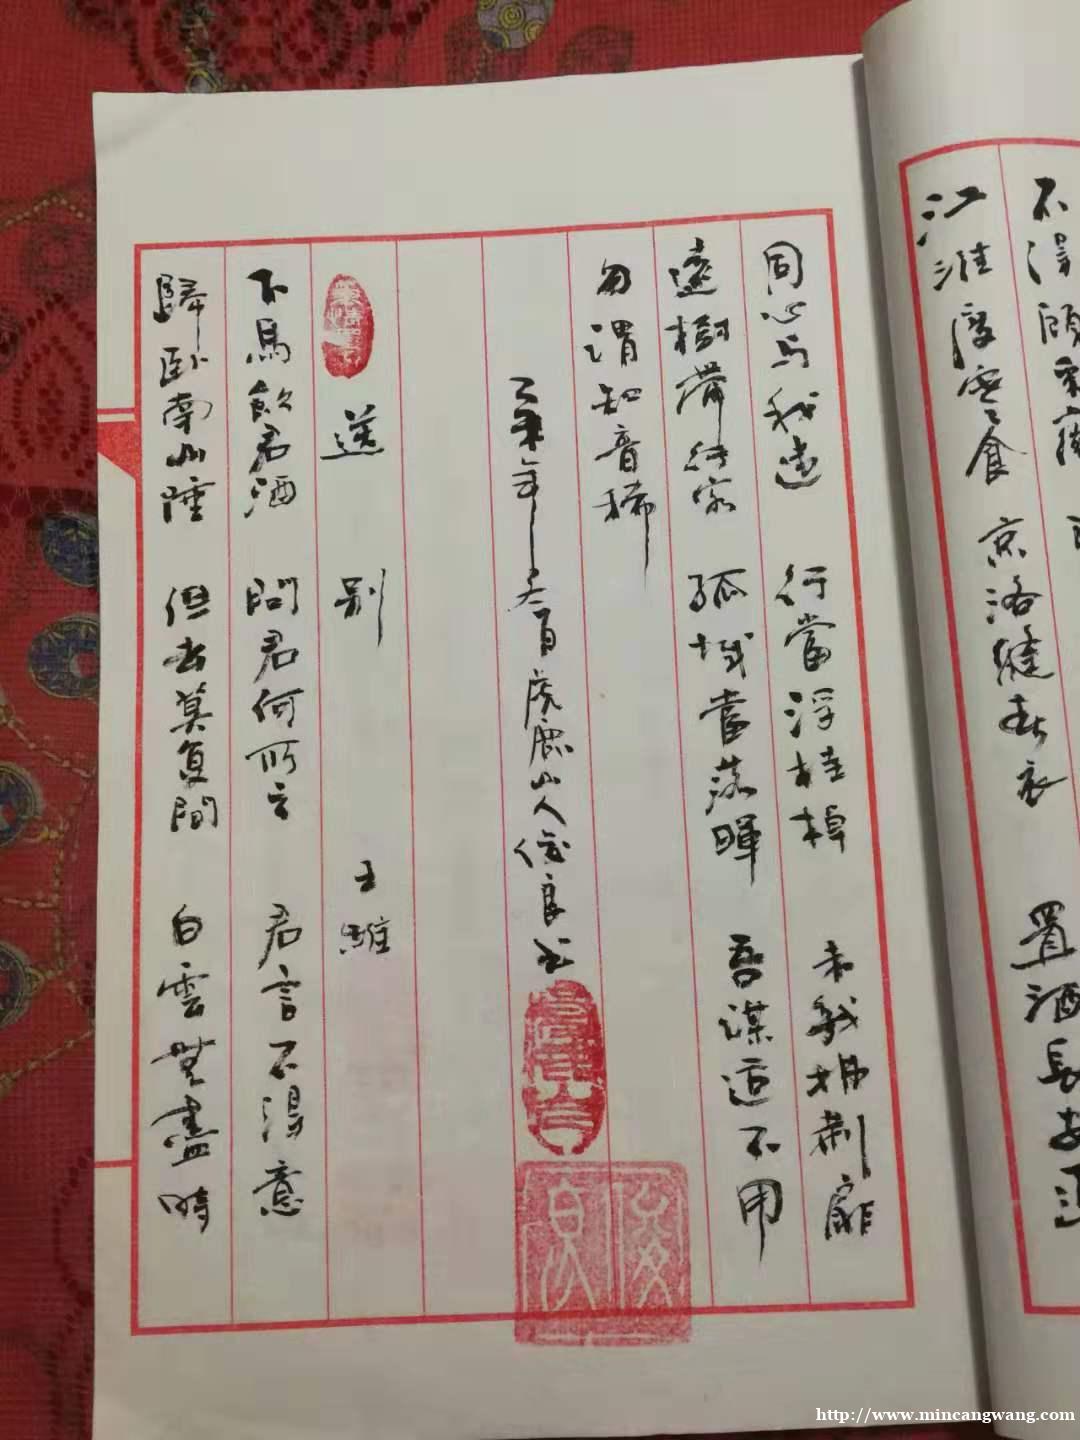 不得顧采薇
江淮度寒食 京洛縫春衣 置酒長安道
同心与我違 行當浮桂棹 未幾拂荆扉
遠樹帶行客 孤城當落暉 吾謀適不用
勿謂知音稀
年 山人俊良书
送 别 王維
下馬飲君酒 問君何所之 君言不得意
歸卧南山陲 但去莫复問 白雲無盡時
俊良
http://www.mincangwang.com